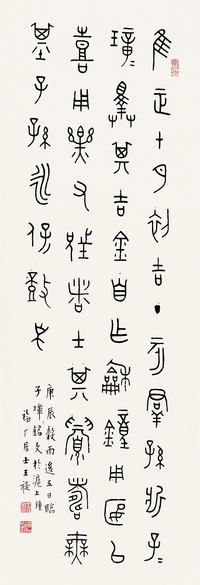 隹正十月初吉丁亥羣孫斨子=
璋=擇其吉金自乍龢鐘用匽以
喜用樂父兄者士其眉壽無
基子孫永保鼓之
庚辰穀雨五日臨
子璋銘文於滬上
福厂居士王禔